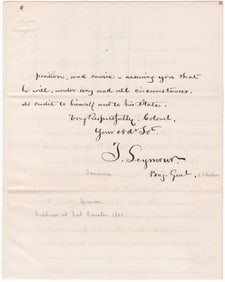 position, and service – assuring you that
he will, under any and all circumstances,
do credit to himself and to his State.
Very Respectfully, Colonel,
Your obdt Svt.
T. Seymour
Brig. Genl.